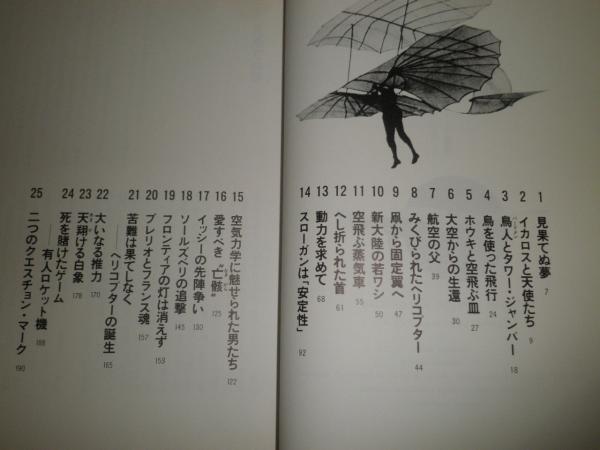 1 見果てぬ夢 7
2 イカロスと天使たち 9
3 鳥人とタワー・ジャンパー 18
4 鳥を使った飛行 24
5 ホウキと空飛ぶ皿 27
6 大空からの生還 30
7 航空の父 39
8 みくびられたヘリコプター 44
9 凧から固定翼へ 47
10 新大陸の若ワシ 50
11 空飛ぶ蒸気車 55
12 へし折られた首 61
13 動力を求めて 68
14 スローガンは「安定性」 92
15 空気力学に魅せられた男たち 122
16 愛すべき“亡骸” 125
17 イッシーの先陣争い 130
18 ソールズベリの追撃 145
19 フロンティアの灯は消えず 153
20 ブレリオとフランス魂 157
21 苦難は果てしなく
――ヘリコプターの誕生 165
22 大いなる推力 170
23 天翔ける白象 178
24 死を賭けたゲーム
――有人ロケット機 188
25 二つのクエスチョン・マーク 190